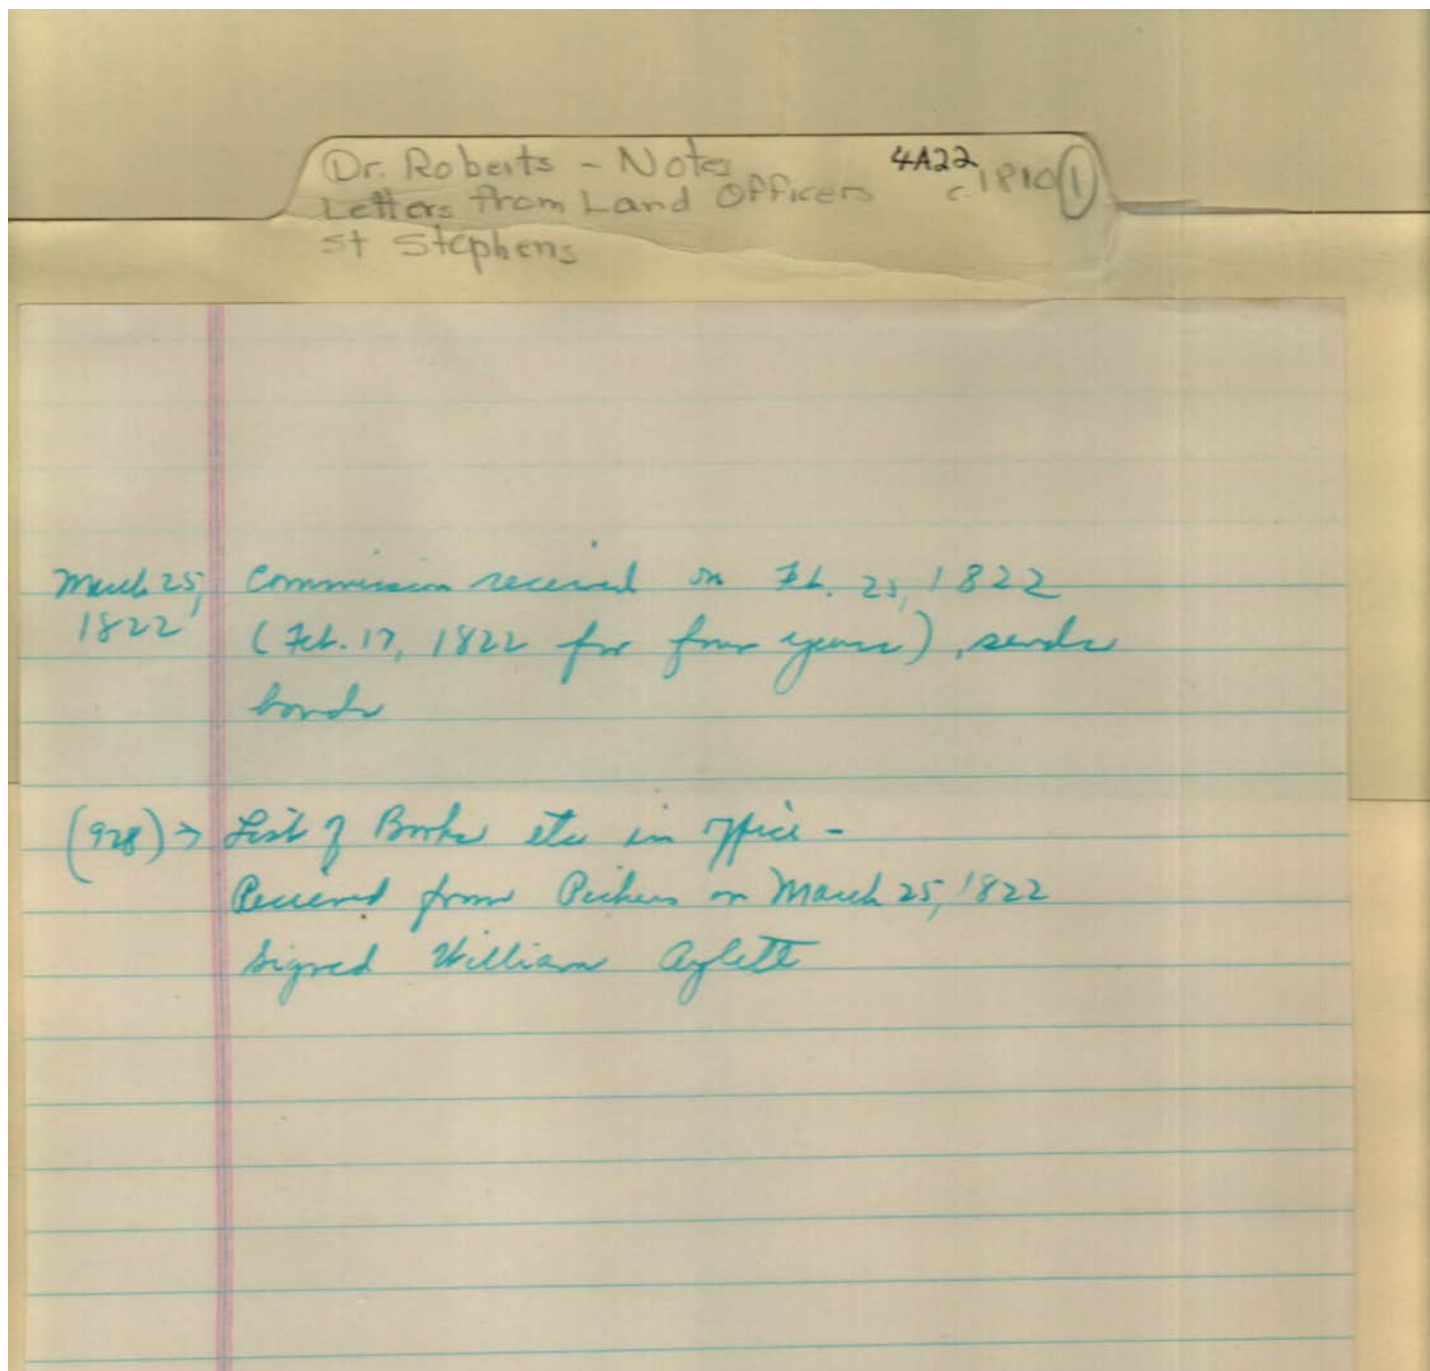 Dr. Roberts - Notes 4A22
Letters from Land Officers c. 1810 1
St Stephens
March 25, Commission received on Feb. 25, 1822
1822 (Feb. 17, 1822 for four years), sends
bonds
(928) → List of Books etc in office -
Received from Pickens on March 25, 1822
Signed William Aylett